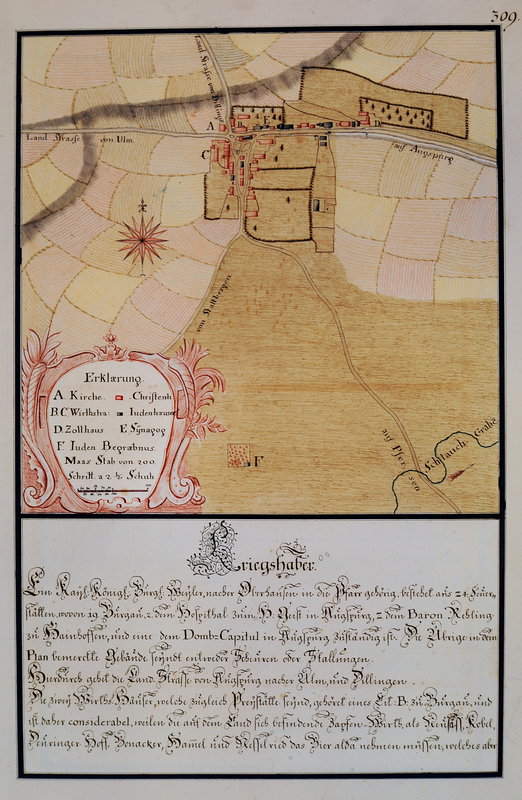 309.
Land Strasse von Dilling
A
B
E
D
C
Land Strasse von Ulm.
auf Augspurg
von Stattbergen
Erklærung.
A. Kirche. Christenh
B.C Wirthshä: Iudenhæuser
D. Zollhaus E Sÿnagog
F. Iuden Begræbnus.
Maas Stab von 200.
Schritt. a 2 ½ Schuh
F
auf Pfersen
Schlauch Grabe
Kriegshaber.
Ein Kaÿl. Königl. Burgl. Weÿler, nacher Oberhausen in die Pfarr gehörig, bestehet aus 24. Feuer,
stätten, wovon 19 Burgau, 2. dem Hospithal zum H. Geist in Augspurg, 2 dem Baron Rehling
zu Hainhoffen, und eine dem Domb-Capitul in Augspurg zuständig ist. Die Übrige in dem
Plan bemerckte Gebäude seÿndt entweder Scheuren oder Stallungen.
Hierdurch gehet die Land Strasse von Augspurg nacher Ulm, und Dillingen.
Die zweÿ Wirths Häuser, welche zugleich Preÿstätte seÿnd, gehöret eines Tit: B: zu Burgau, und
ist daher considerabel, weilen die auf dem Land sich befindende Zapfen-Wirth, als Neusäss, Kobel,
Deuringer Hoff, Bonacker, Hamel und Nesselried das Bier alda nehmen müssen, welches aber